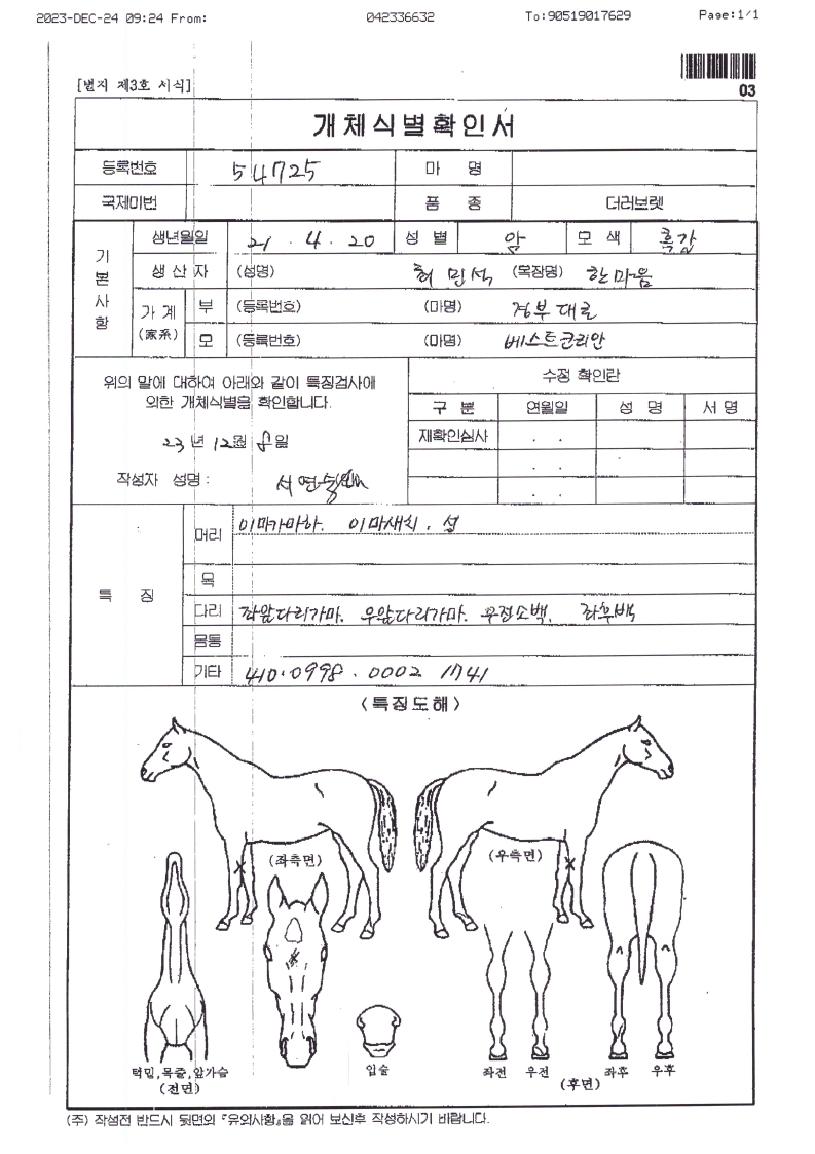 2023-DEC-24 09:24 From: 042336632 To:90519017629 Page:1/1
03
[별지 제3호 서식]
개체식별확인서
등록번호 54725 마 명
국제마번 품 종 더러브렛
기본사항
생년월일 21 . 4 . 20 성 별 암 모 색 흑갈
생 산 자 (성명) 허 민석 (목장명) 한마음
가 계 (家系) 부 (등록번호) (마명) 경부대로
모 (등록번호) (마명) 베스트코리안
위의 말에 대하여 아래와 같이 특징검사에
의한 개체식별을 확인합니다.
23 년 12월 8일
작성자 성명 :
수정 확인란
구 분 연월일 성 명 서 명
재확인심사 . .
. .
. .
특 징
머리 이마가마하. 이마새치. 성
목
다리 좌앞다리가마. 우앞다리가마. 우전소백. 좌후백
몸통
기타 410.0998.0002 1741
<특징도해>
(좌측면) (우측면)
턱밑,목줄,앞가슴 입술 좌전 우전 좌후 우후
(전면) (후면)
(주) 작성전 반드시 뒷면의 『유의사항』을 읽어 보신후 작성하시기 바랍니다.